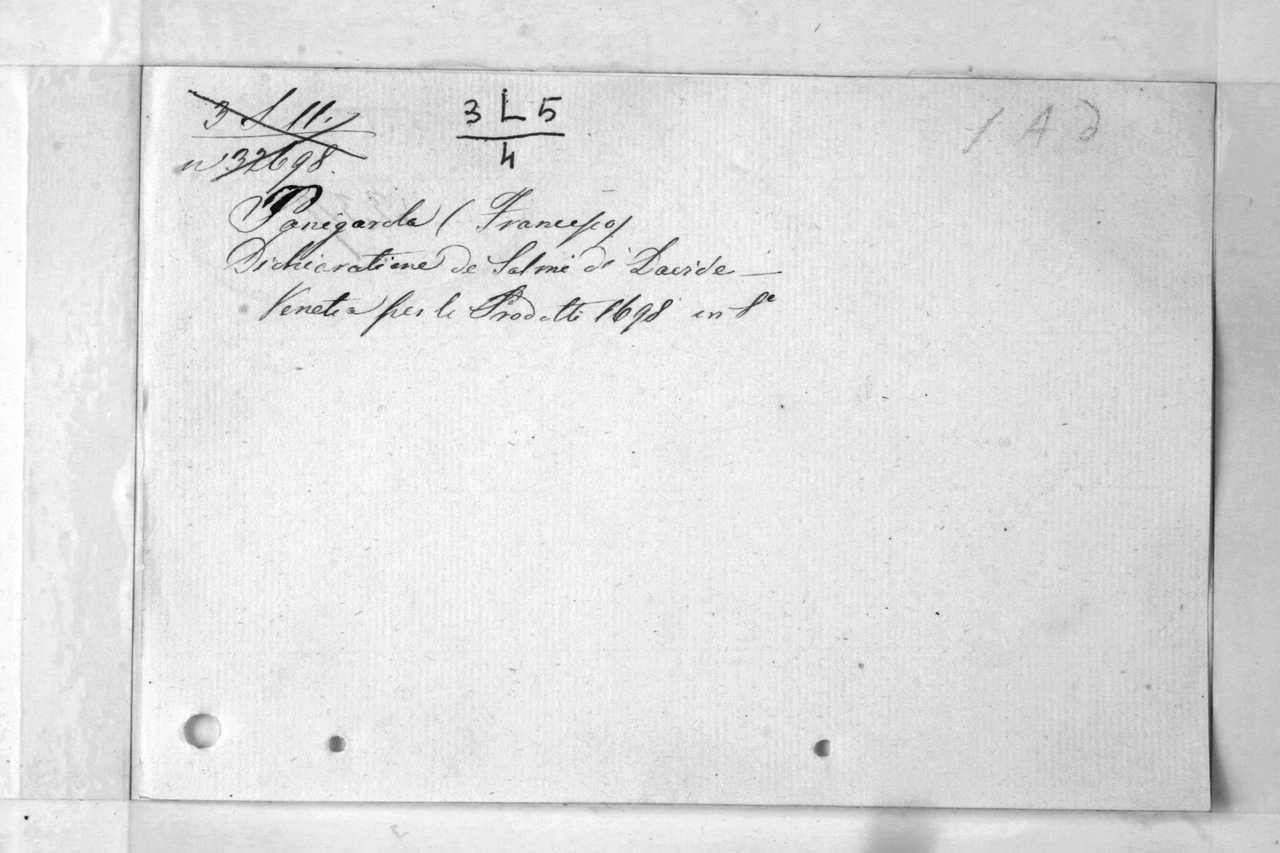 3 L 11.
3 L 5
4
n° 32698.
Panigarola (Francesco)
Dichiaratione de Salmi di Davide —
Venetia per li Prodotti 1698 in 8°